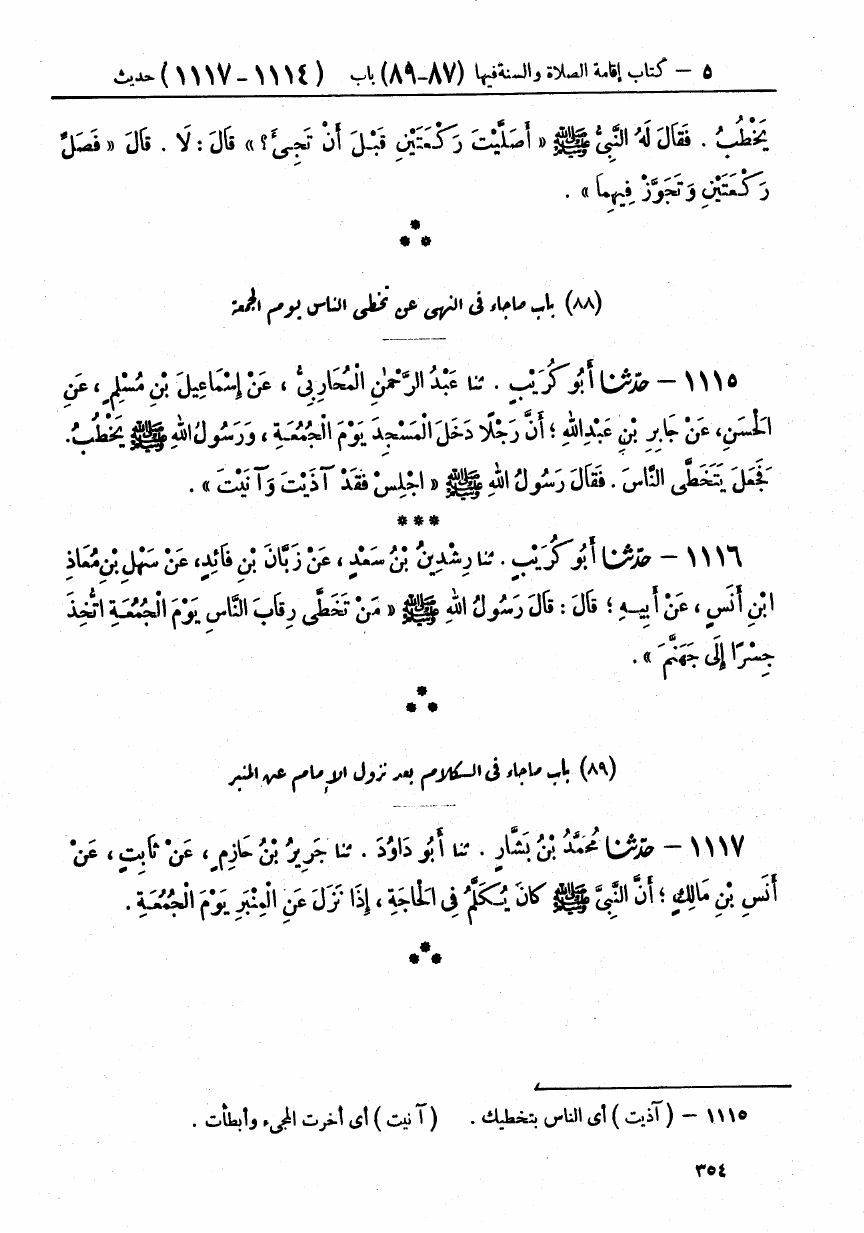 ٥ – كتاب إقامة الصلاة والسنة فيها (٨٧-٨٩) باب (١١١٤ – ١١١٧) حديث
يَخْطُبُ . فَقَالَ لَهُ النَّبِيُّ ﷺ « أَصَلَّيْتَ رَكْعَتَيْنِ قَبْلَ أَنْ تَجِيءَ؟ » قَالَ : لَا . قَالَ « فَصَلِّ
رَكْعَتَيْنِ وَتَجَوَّزْ فِيهِمَا » .
(٨٨) باب ماجاء فى النهى عن تخطى الناس يوم الجمعة
١١١٥ – حدّثنا أَبُو كُرَيْبٍ . ثنا عَبْدُ الرَّحْمٰنِ الْمُحَارِبِيُّ ، عَنْ إِسْمَاعِيلَ بْنِ مُسْلِمٍ ، عَنِ
الْحَسَنِ، عَنْ جَابِرِ بْنِ عَبْدِ اللهِ ؛ أَنَّ رَجُلًا دَخَلَ الْمَسْجِدَ يَوْمَ الْجُمُعَةِ ، وَرَسُولُ اللهِ ﷺ يَخْطُبُ.
فَجَعَلَ يَتَخَطَّى النَّاسَ . فَقَالَ رَسُولُ اللهِ ﷺ « اجْلِسْ فَقَدْ آذَيْتَ وَآنَيْتَ » .
***
١١١٦ – حدّثنا أَبُو كُرَيْبٍ . ثنا رِشْدِينُ بْنُ سَعْدٍ ، عَنْ زَبَّانَ بْنِ فَائِدٍ، عَنْ سَهْلِ بْنِ مُعَاذِ
ابْنِ أَنَسٍ ، عَنْ أَبِيهِ ؛ قَالَ : قَالَ رَسُولُ اللهِ ﷺ « مَنْ تَخَطَّى رِقَابَ النَّاسِ يَوْمَ الْجُمُعَةِ اتُّخِذَ
جِسْرًا إِلَى جَهَنَّمَ » .
(٨٩) باب ماجاء فى الكلام بعد نزول الإمام عن المنبر
١١١٧ – حدّثنا مُحَمَّدُ بْنُ بَشَّارٍ . ثنا أَبُو دَاوُدَ . ثنا جَرِيرُ بْنُ حَازِمٍ ، عَنْ ثَابِتٍ ، عَنْ
أَنَسِ بْنِ مَالِكٍ ؛ أَنَّ النَّبِيَّ ﷺ كَانَ يُكَلَّمُ فِى الْحَاجَةِ ، إِذَا نَزَلَ عَنِ الْمِنْبَرِ يَوْمَ الْجُمُعَةِ .
١١١٥ – ( آذيت ) أى الناس بتخطيك . ( آنيت ) أى أخرت المجىء وأبطأت .
٣٥٤